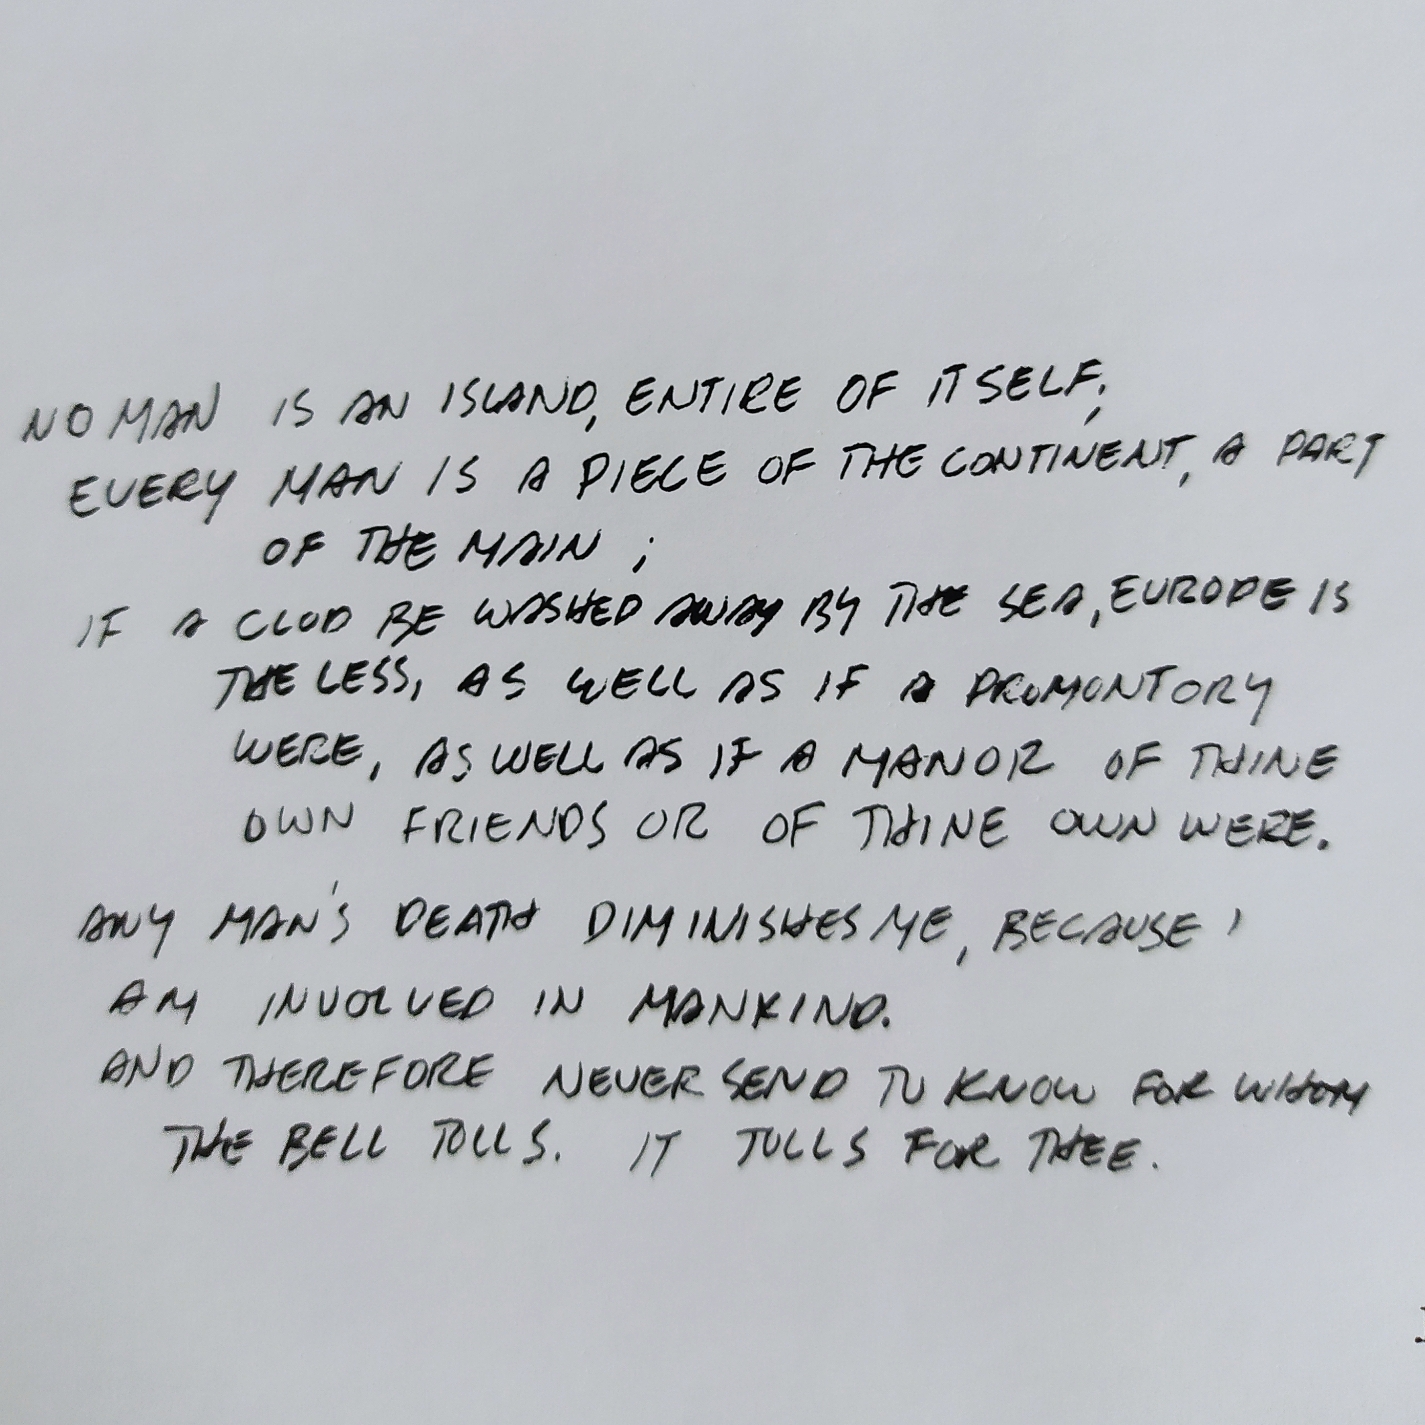 NO MAN IS AN ISLAND, ENTIRE OF ITSELF;
EVERY MAN IS A PIECE OF THE CONTINENT, A PART
OF THE MAIN;
IF A CLOD BE WASHED AWAY BY THE SEA, EUROPE IS
THE LESS, AS WELL AS IF A PROMONTORY
WERE, AS WELL AS IF A MANOR OF THINE
OWN FRIENDS OR OF THINE OWN WERE.
ANY MAN'S DEATH DIMINISHES ME, BECAUSE I
AM INVOLVED IN MANKIND.
AND THEREFORE NEVER SEND TO KNOW FOR WHOM
THE BELL TOLLS. IT TOLLS FOR THEE.